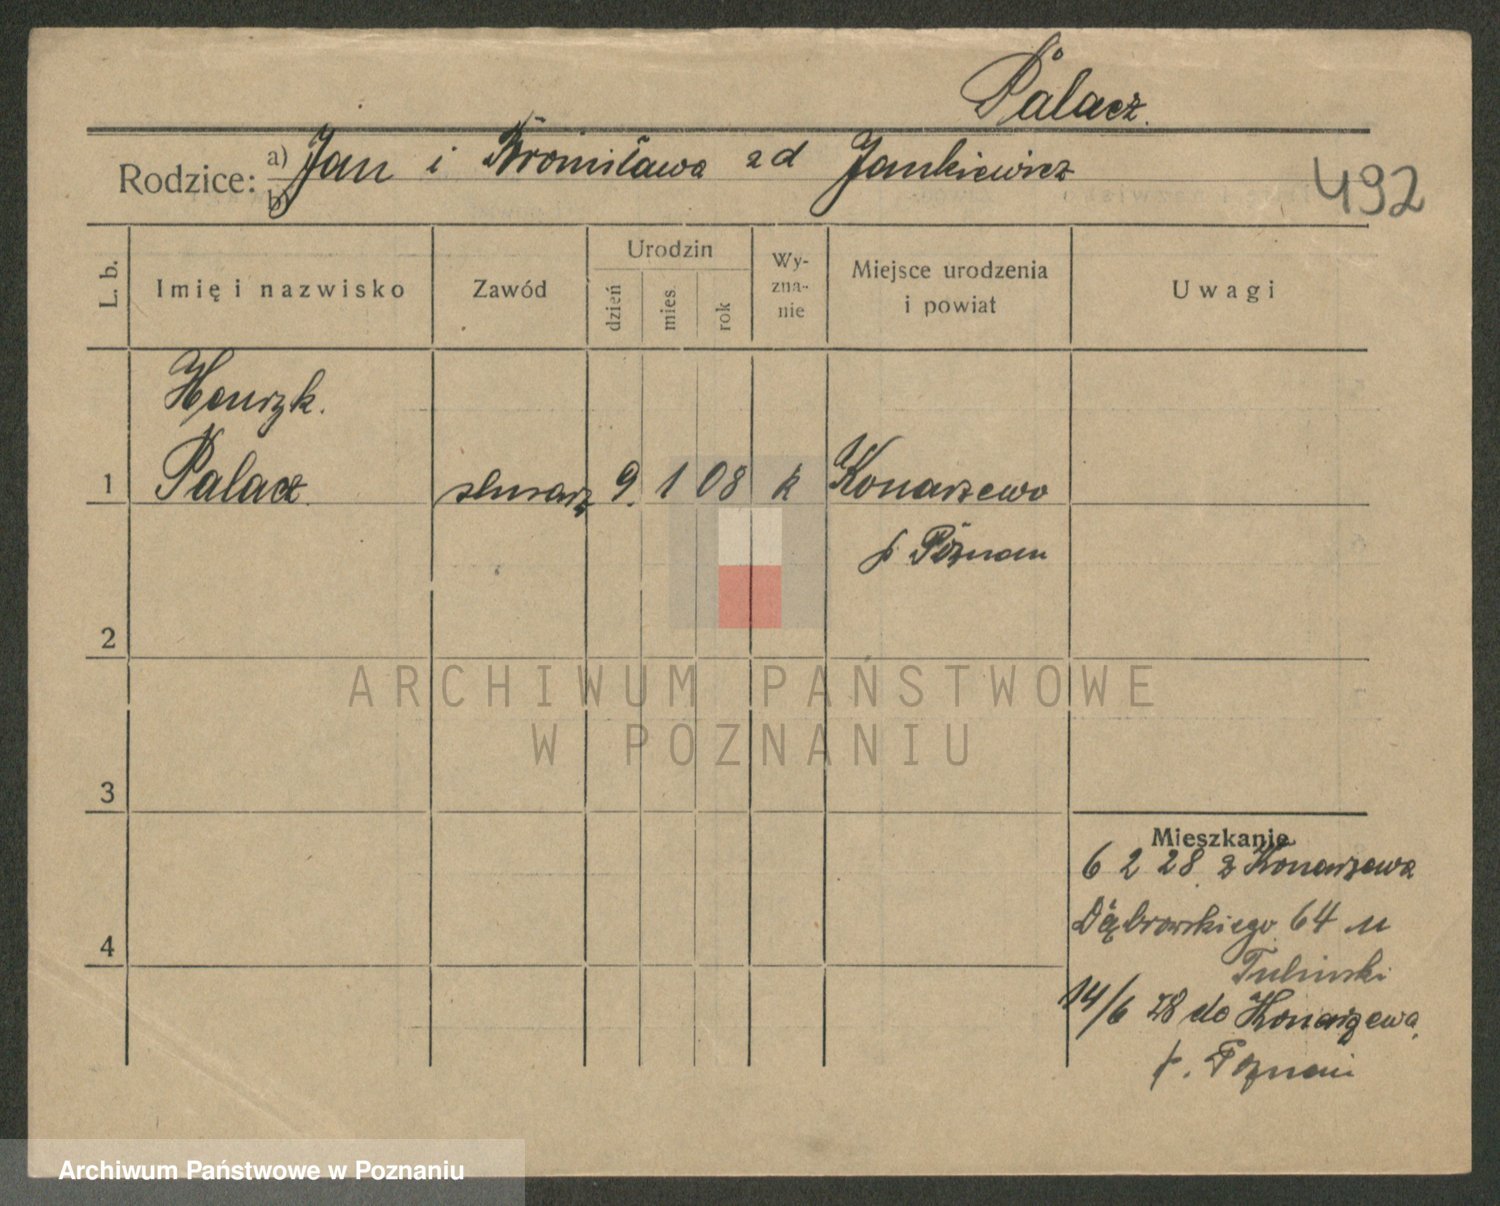 Palacz.
Rodzice: a) Jan i Bronisława zd Jankiewicz
b)
492
L. b.
Imię i nazwisko
Zawód
Urodzin
dzień
mies.
rok
Wy-
zna-
nie
Miejsce urodzenia
i powiat
Uwagi
Henryk.
1 Palacz ślusarz 9. 1 08 k Konarzewo
p Poznań
2
ARCHIWUM PAŃSTWOWE
W POZNANIU
3
Mieszkanie
6 2 28 z Konarzewa
Dąbrowskiego 64 u
4
14/6 28 do Konarzewa.
p. Poznań
Archiwum Państwowe w Poznaniu